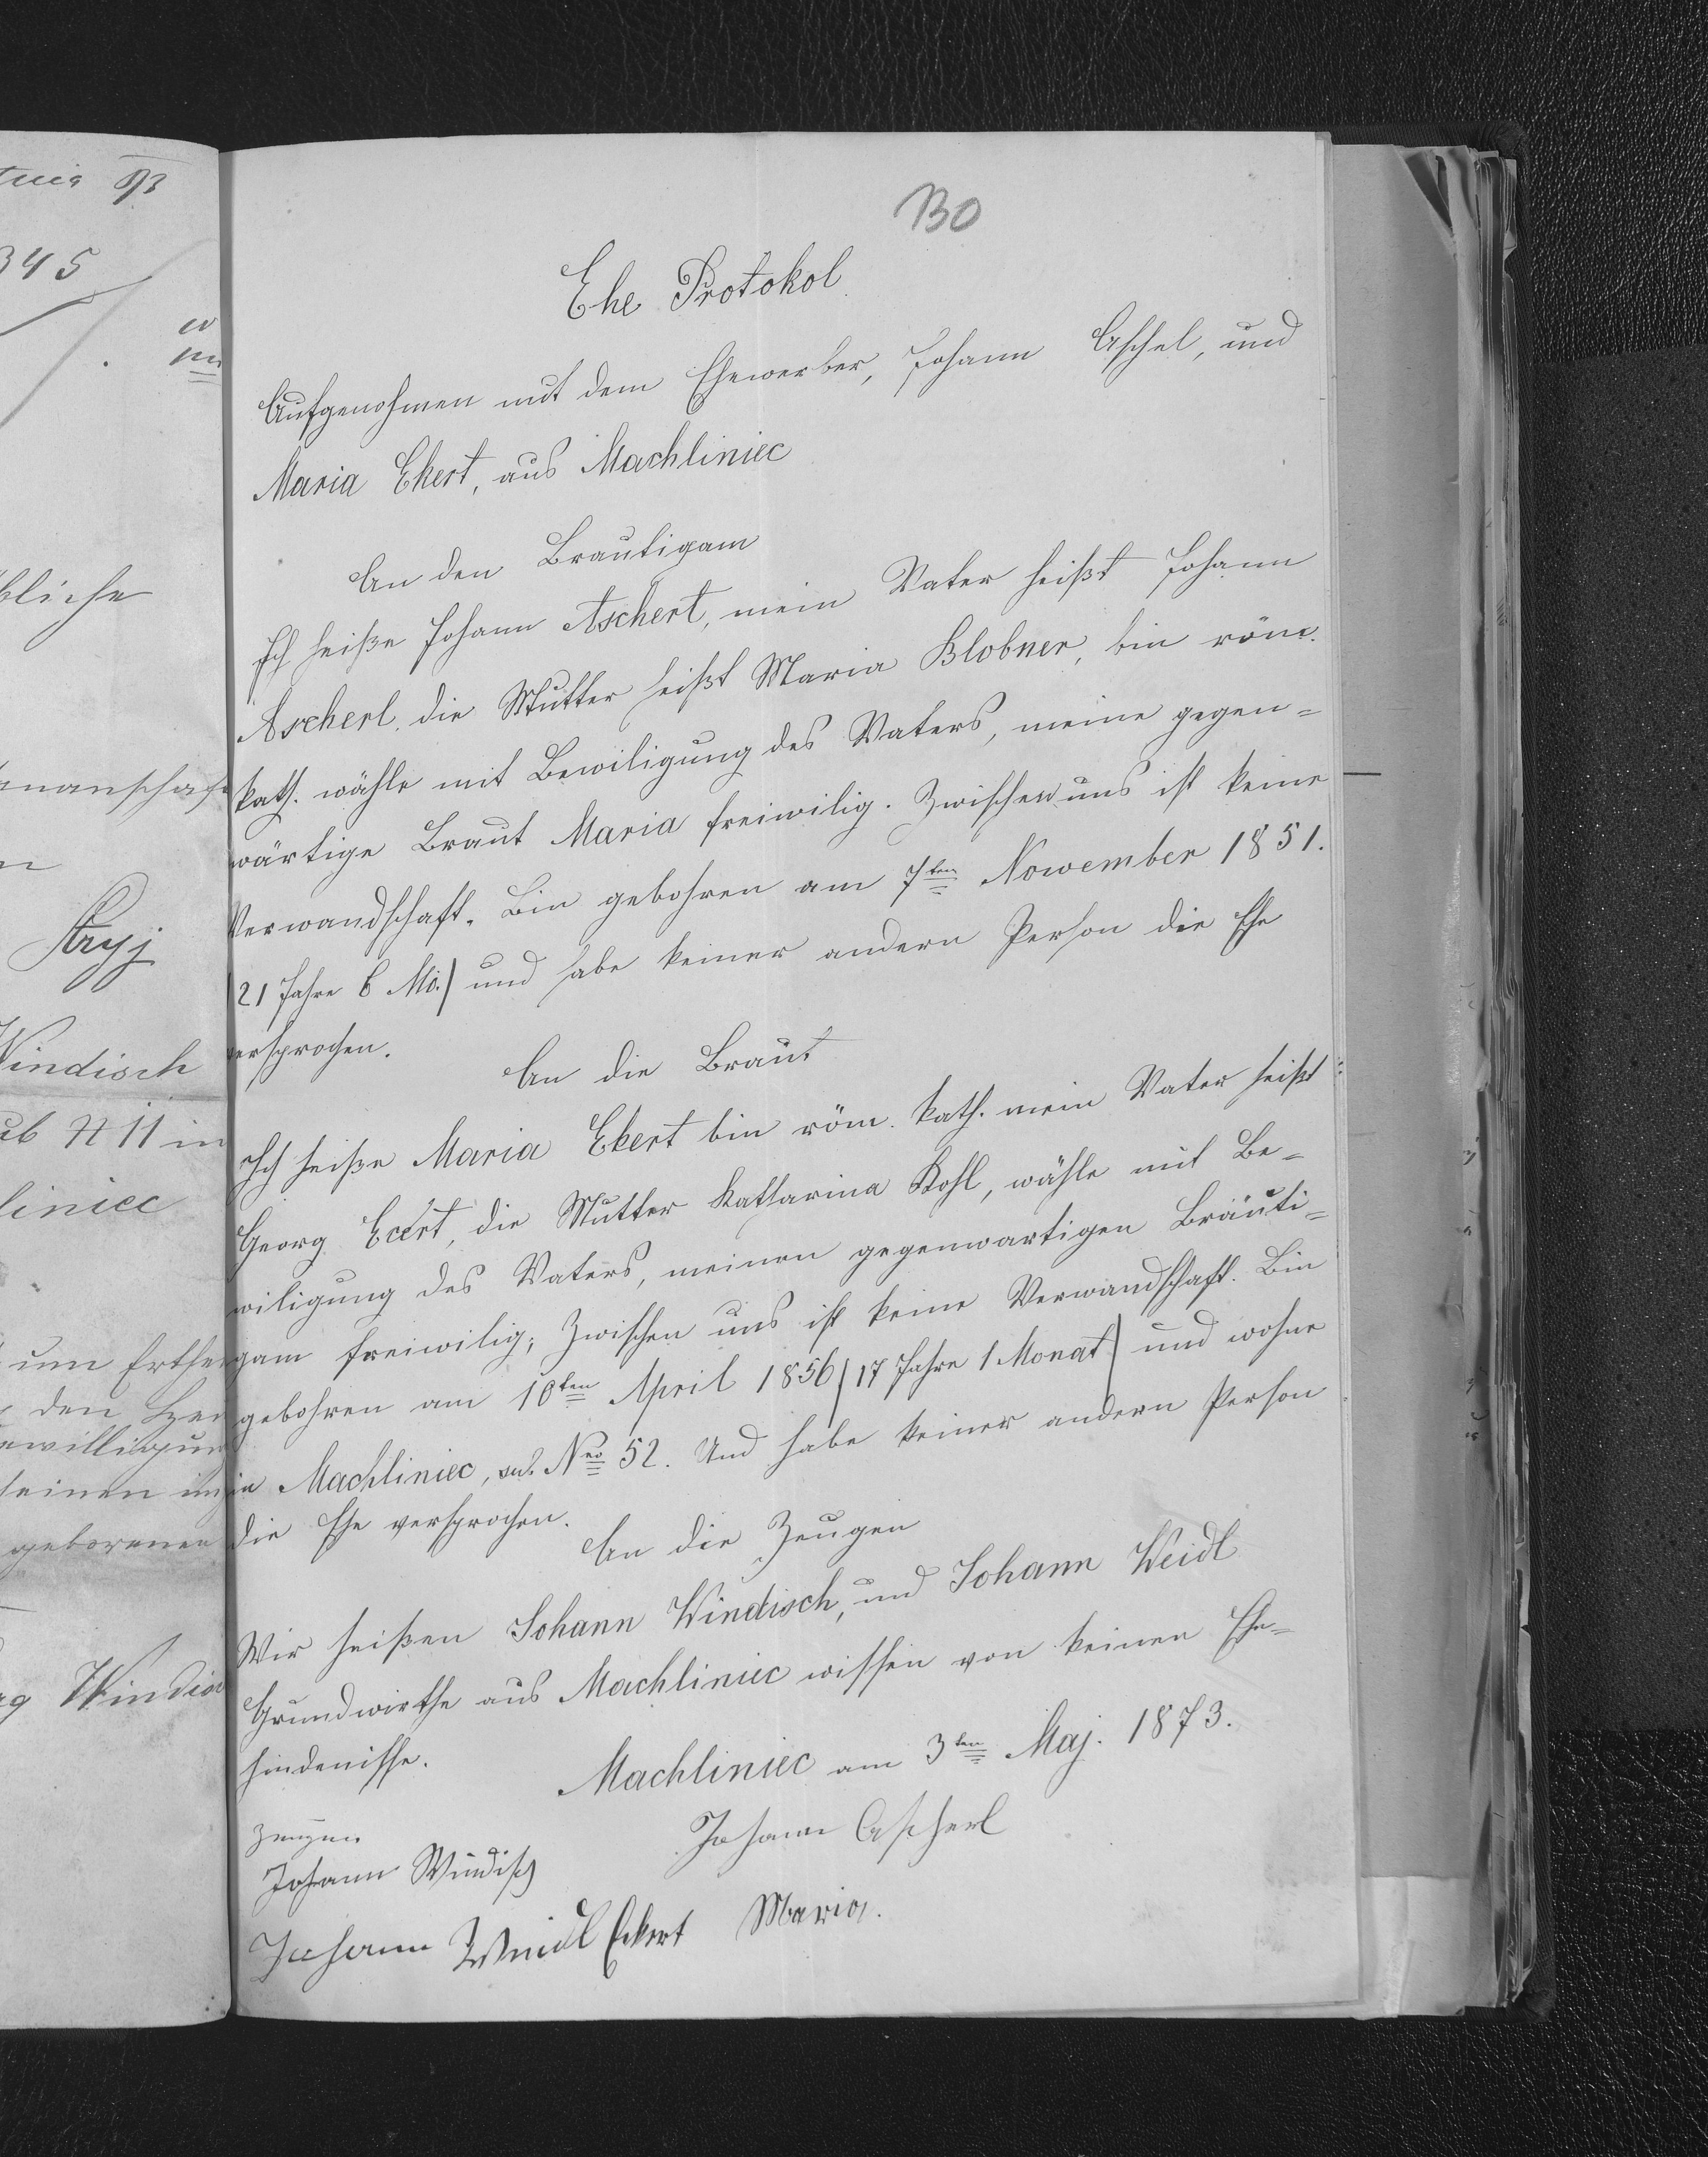 130
Ehe Protokol
Aufgenohmen mit dem Ehewerber, Johann Aschel, und
Maria Ekert, aus Machliniec
An den Brautigam
Ich heiße Johann Aschert, mein Vater heißt Johann
Ascherl, die Mutter heißt Maria Blobner, bin röm.
kath. wähle mit Bewiligung des Vaters, meine gegen=
wärtige Braut Maria freiwilig. Zwischen uns ist keine
Verwandschaft. Bin gebohren am 7ten Nowember 1851.
/21 Jahre 6 Mo./ und habe keiner andern Person die Ehe
versprochen.
An die Braut
Ich heiße Maria Ekert bin röm. kath. mein Vater heißt
Georg Eckert, die Mutter Katharina Kohl, wähle mit Be=
wiligung des Vaters, meinen gegenwartigen Bräuti=
gam freiwilig; Zwischen uns ist keine Verwandschaft. Bin
gebohren am 10ten April 1856 /17 Jahre 1 Monat/ und wohne
in Machliniec, sub Nro 52. Und habe keiner andern Person
die Ehe versprochen.
An die Zeugen
Wir heißen Johann Windisch, und Johann Weidl
Grundwirthe aus Machliniec wissen von keinen Ehe=
hindenisse.
Machliniec am 3ten Maj. 1873.
Zeugen
Johann Ascherl
Johann Windisch
Johann Weidl Eckert Maria.
345
bliche
Stryj
Windisch
ub N 11 in
liniec
um Erthei
den
ewilligung
seinen
geborenen
rg Windisc